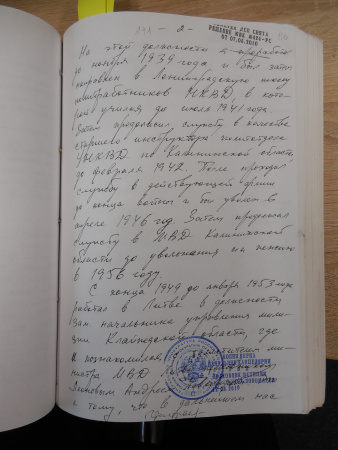 - 2 -
РЕШЕНИЕ МВК №496-РС
ОТ 07.06.2010
На этой должности я проработал
до ноября 1939 года, и был затем
направлен в Ленинградскую школу
политработников НКВД, в кото-
рой учился до июля 1941 года.
Затем продолжил службу в качестве
старшего инструктора политотдела
УНКВД по Калининской области
до февраля 1942. После проходил
службу в действующей армии
до конца войны и был уволен в
1946 год. Затем продолжал
службу в МВД Калининской
области до увольнения на пенсию
в 1956 году.
С конца 1949 до января 1953 года
работал в Литве в должности
зам начальника управления мили-
ции Клайпедской области, где
и познакомился с
нистра МВД
Андреем
к тому, что в дальнейшем нас